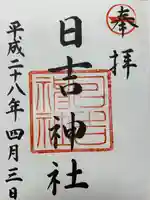 奉拝
日吉神社
平成二十八年四月三日